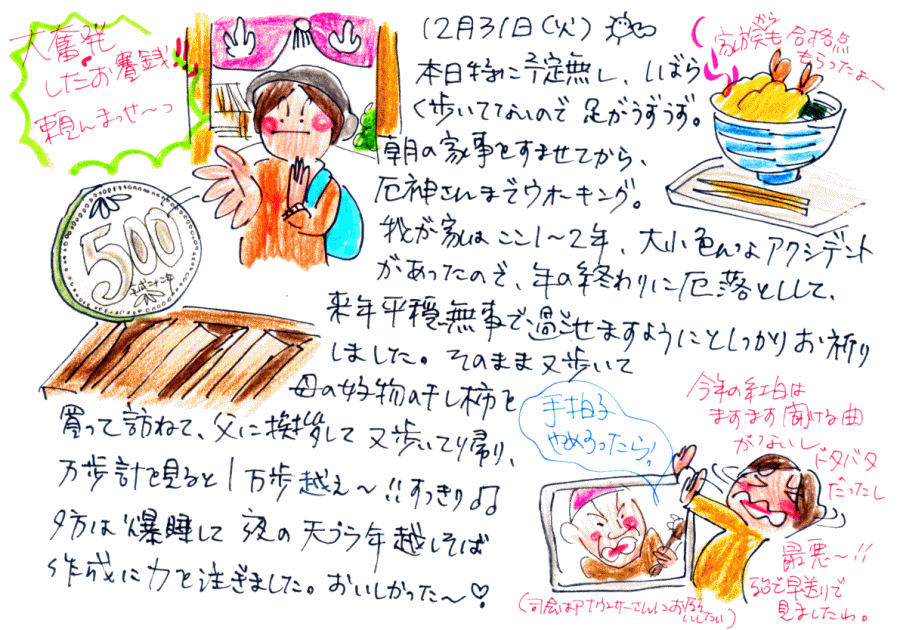 12月31日(火)
本日特に予定無し、しばら
く歩いてないので足がうずうず。
朝の家事をすませてから、
厄神さんまでウオーキング。
我が家はここ1〜2年、大小色んなアクシデント
があったので、年の終わりに厄落としして、
来年平穏無事で過せますようにとしっかりお祈り
しました。そのまま又歩いて
母の好物の干し柿を
買って訪ねて、父に挨拶して又歩いて帰り、
万歩計を見ると1万歩越え〜!!すっきり♫
夕方は爆睡して夜の天プラ年越しそば
作成に力を注ぎました。おいしかった〜♡
大奮発
したお賽銭!!
頼んまっせ〜っ
500
家族からも合格点
もらったよー
手拍子
やめろったら!
今年の紅白は
ますます聞ける曲
がないし、
ドタバタ
だったし
最悪〜!!
早送りで
見ましたわ。
(司会はアナウンサーさんにお願いしたい)